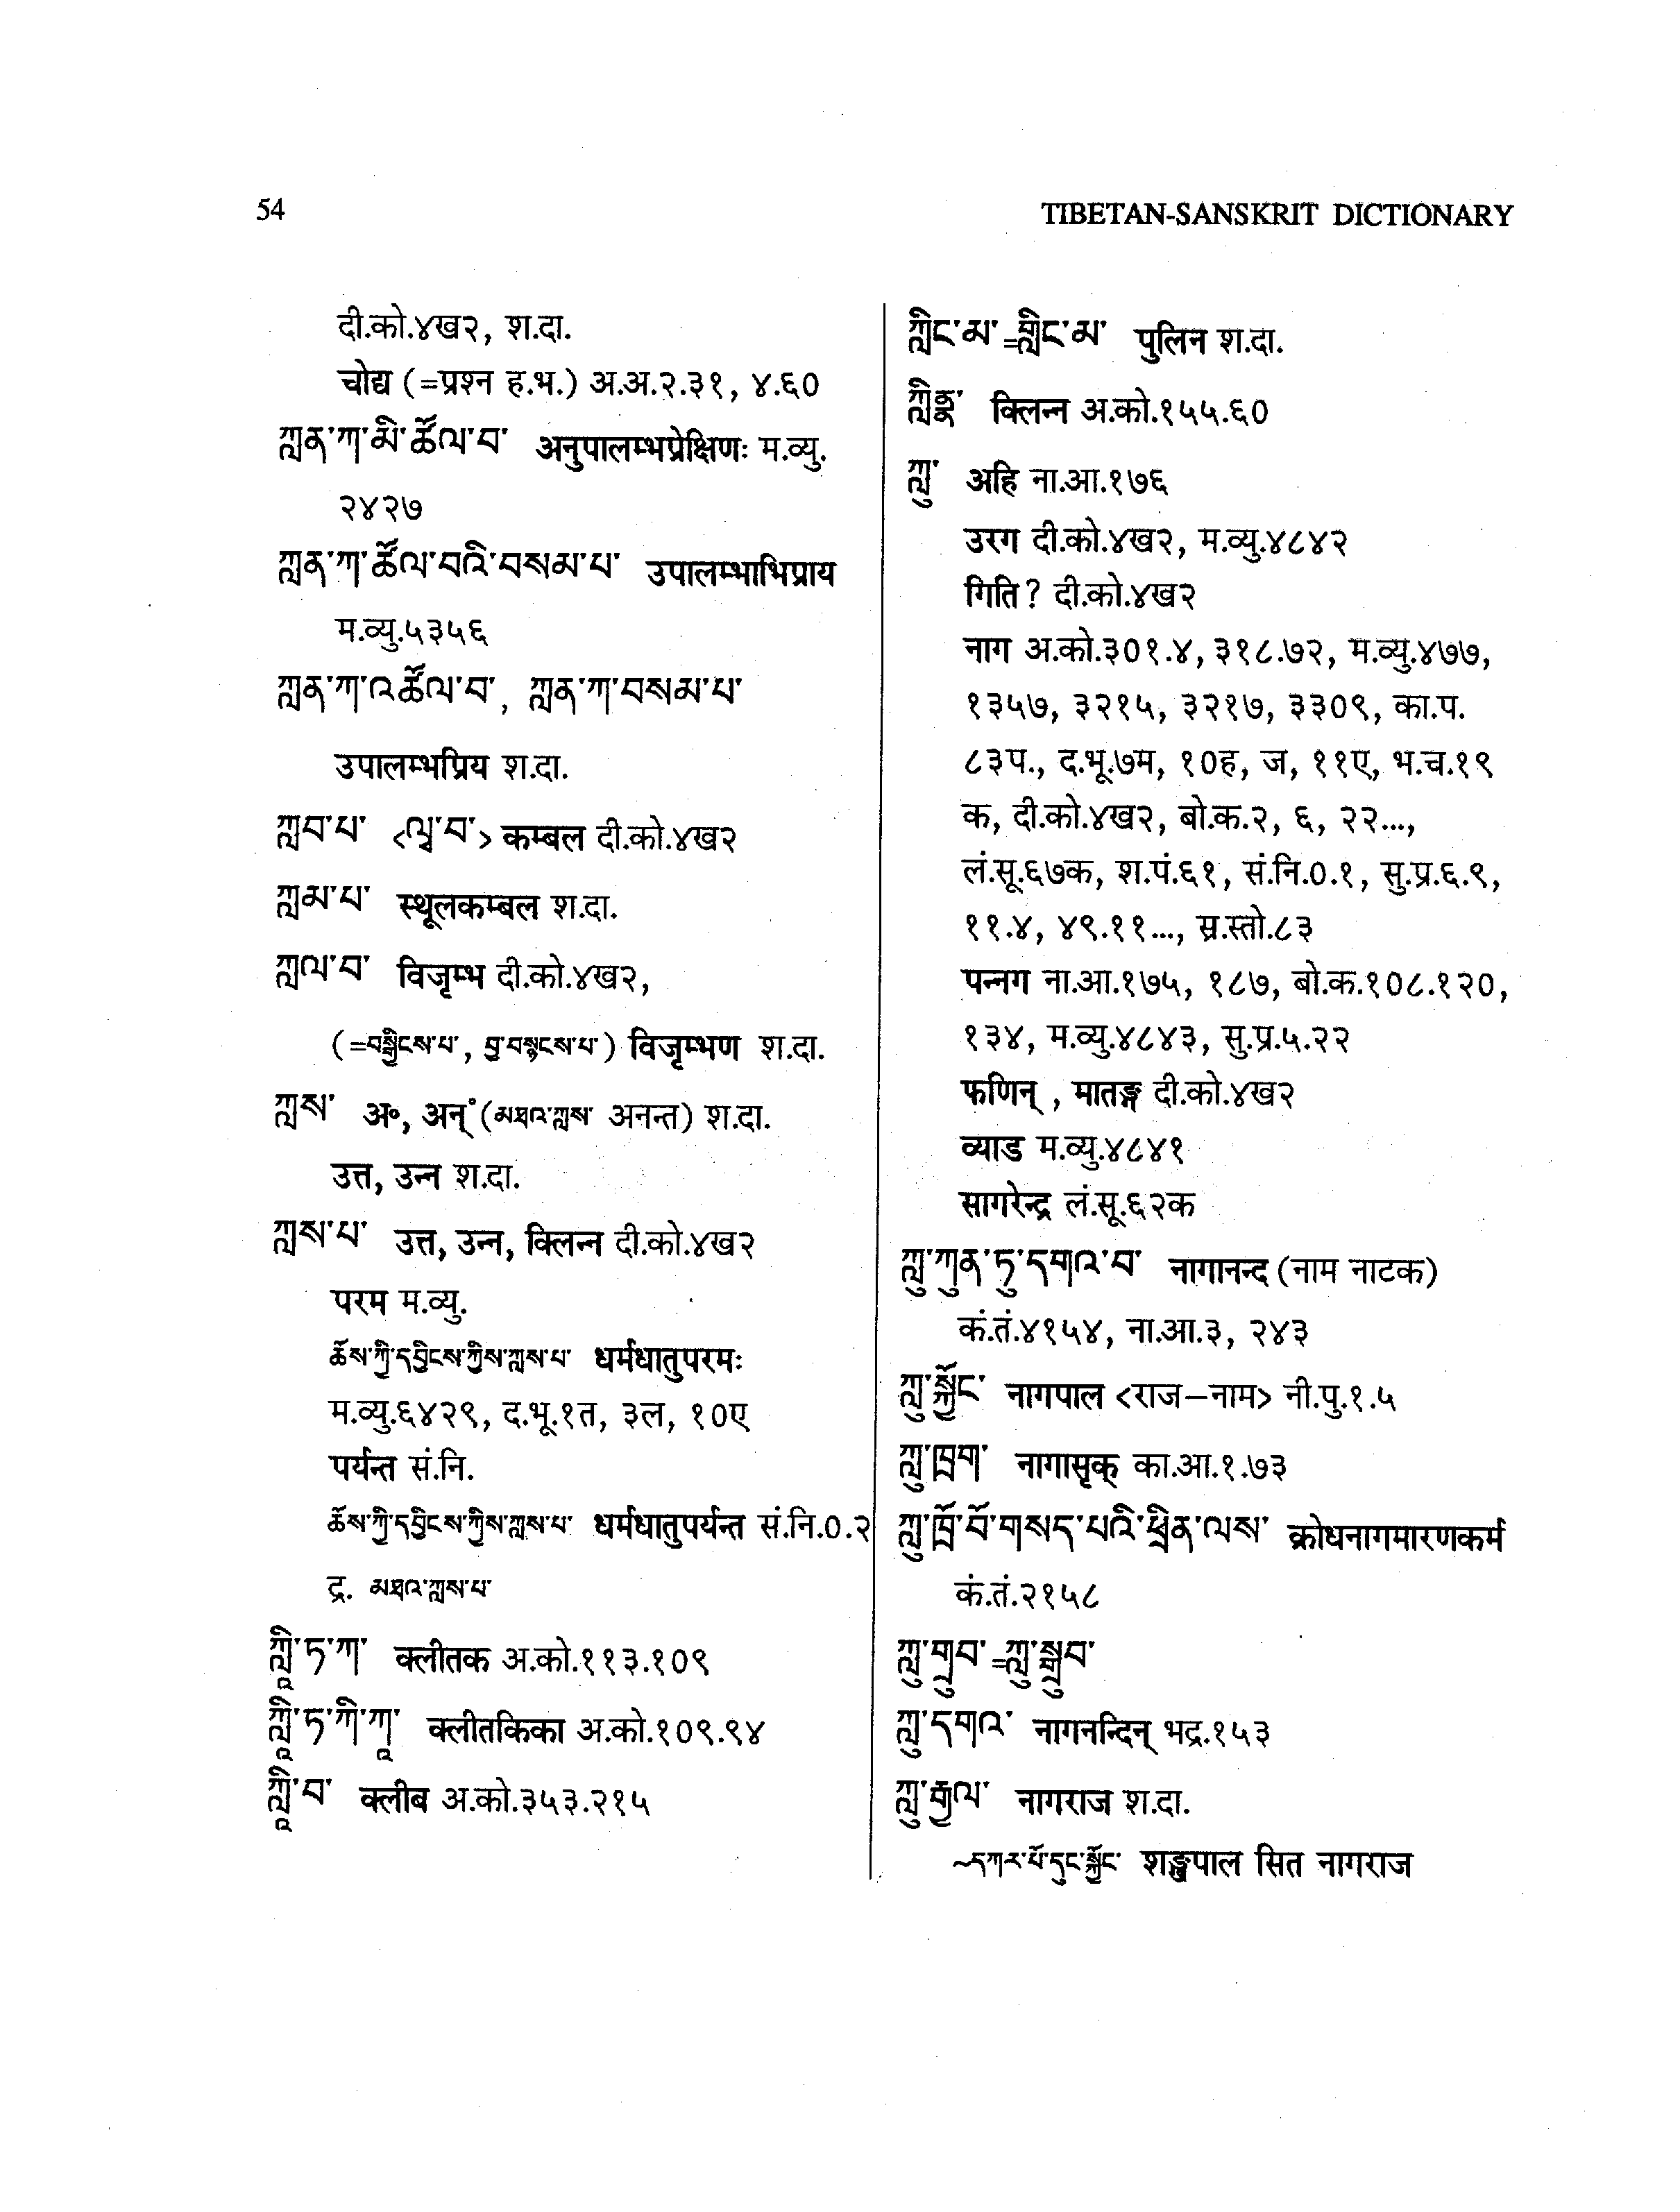 54
TIBETAN-SANSKRIT DICTIONARY
दी.को.४ख२, श.दा.
चोद्य (=प्रश्न ह.भ.) अ.अ.२.३१, ४.६०
ཀླན་ཀ་མི་ཚོལ་བ་ अनुपालम्भप्रेक्षिणः म.व्यु.
२४२७
ཀླན་ཀ་ཚོལ་བའི་བསམ་པ་ उपालम्भाभिप्राय
म.व्यु.५३५६
ཀླན་ཀ་འཚོལ་བ་, ཀླན་ཀ་བསམ་པ་
उपालम्भप्रिय श.दा.
ཀླབ་པ་ <ལྭ་བ་> कम्बल दी.को.४ख२
ཀླམ་པ་ स्थूलकम्बल श.दा.
ཀླལ་བ་ विजृम्भ दी.को.४ख२,
(=བསྒྱིངས་པ་, བྱ་བསྙངས་པ་) विजृम्भण श.दा.
ཀླས་ अ॰, अन्॰ (མཐའ་ཀླས་ अनन्त) श.दा.
उत्त, उन्न श.दा.
ཀླས་པ་ उत्त, उन्न, क्लिन्न दी.को.४ख२
परम म.व्यु.
ཆོས་ཀྱི་དབྱིངས་ཀྱིས་ཀླས་པ་ धर्मधातुपरमः
म.व्यु.६४२९, द.भू.१त, ३ल, १०ए
पर्यन्त सं.नि.
ཆོས་ཀྱི་དབྱིངས་ཀྱིས་ཀླས་པ་ धर्मधातुपर्यन्त सं.नि.०.२
द्र. མཐའ་ཀླས་པ་
ཀླཱི་ཏ་ཀ་ क्लीतक अ.को.११३.१०९
ཀླཱི་ཏ་ཀི་ཀཱ་ क्लीतकिका अ.को.१०९.९४
ཀླཱི་བ་ क्लीब अ.को.३५३.२१५
ཀླིང་མ་=གླིང་མ་ पुलिन श.दा.
ཀླིནྣ་ क्लिन्न अ.को.१५५.६०
ཀླུ་ अहि ना.आ.१७६
उरग दी.को.४ख२, म.व्यु.४८४२
गिति? दी.को.४ख२
नाग अ.को.३०१.४, ३१८.७२, म.व्यु.४७७,
१३५७, ३२१५, ३२१७, ३३०९, का.प.
८३प., द.भू.७म, १०ह, ज, ११ए, भ.च.१९
क, दी.को.४ख२, बो.क.२, ६, २२...,
लं.सू.६७क, श.पं.६१, सं.नि.०.१, सु.प्र.६.९,
११.४, ४९.११..., स्र.स्तो.८३
पन्नग ना.आ.१७५, १८७, बो.क.१०८.१२०,
१३४, म.व्यु.४८४३, सु.प्र.५.२२
फणिन्, मातङ्ग दी.को.४ख२
व्याड म.व्यु.४८४१
सागरेन्द्र लं.सू.६२क
ཀླུ་ཀུན་ཏུ་དགའ་བ་ नागानन्द (नाम नाटक)
कं.तं.४१५४, ना.आ.३, २४३
ཀླུ་སྐྱོང་ नागपाल <राज–नाम> नी.पु.१.५
ཀླུ་ཁྲག་ नागासृक् का.आ.१.७३
ཀླུ་ཁྲོ་བོ་གསད་པའི་ཕྲིན་ལས་ क्रोधनागमारणकर्म
कं.तं.२१५८
ཀླུ་གྲུབ་=ཀླུ་སྒྲུབ་
ཀླུ་དགའ་ नागनन्दिन् भद्र.१५३
ཀླུ་རྒྱལ་ नागराज श.दा.
~དཀར་པོ་དུང་སྐྱོང་ शङ्खपाल सित नागराज